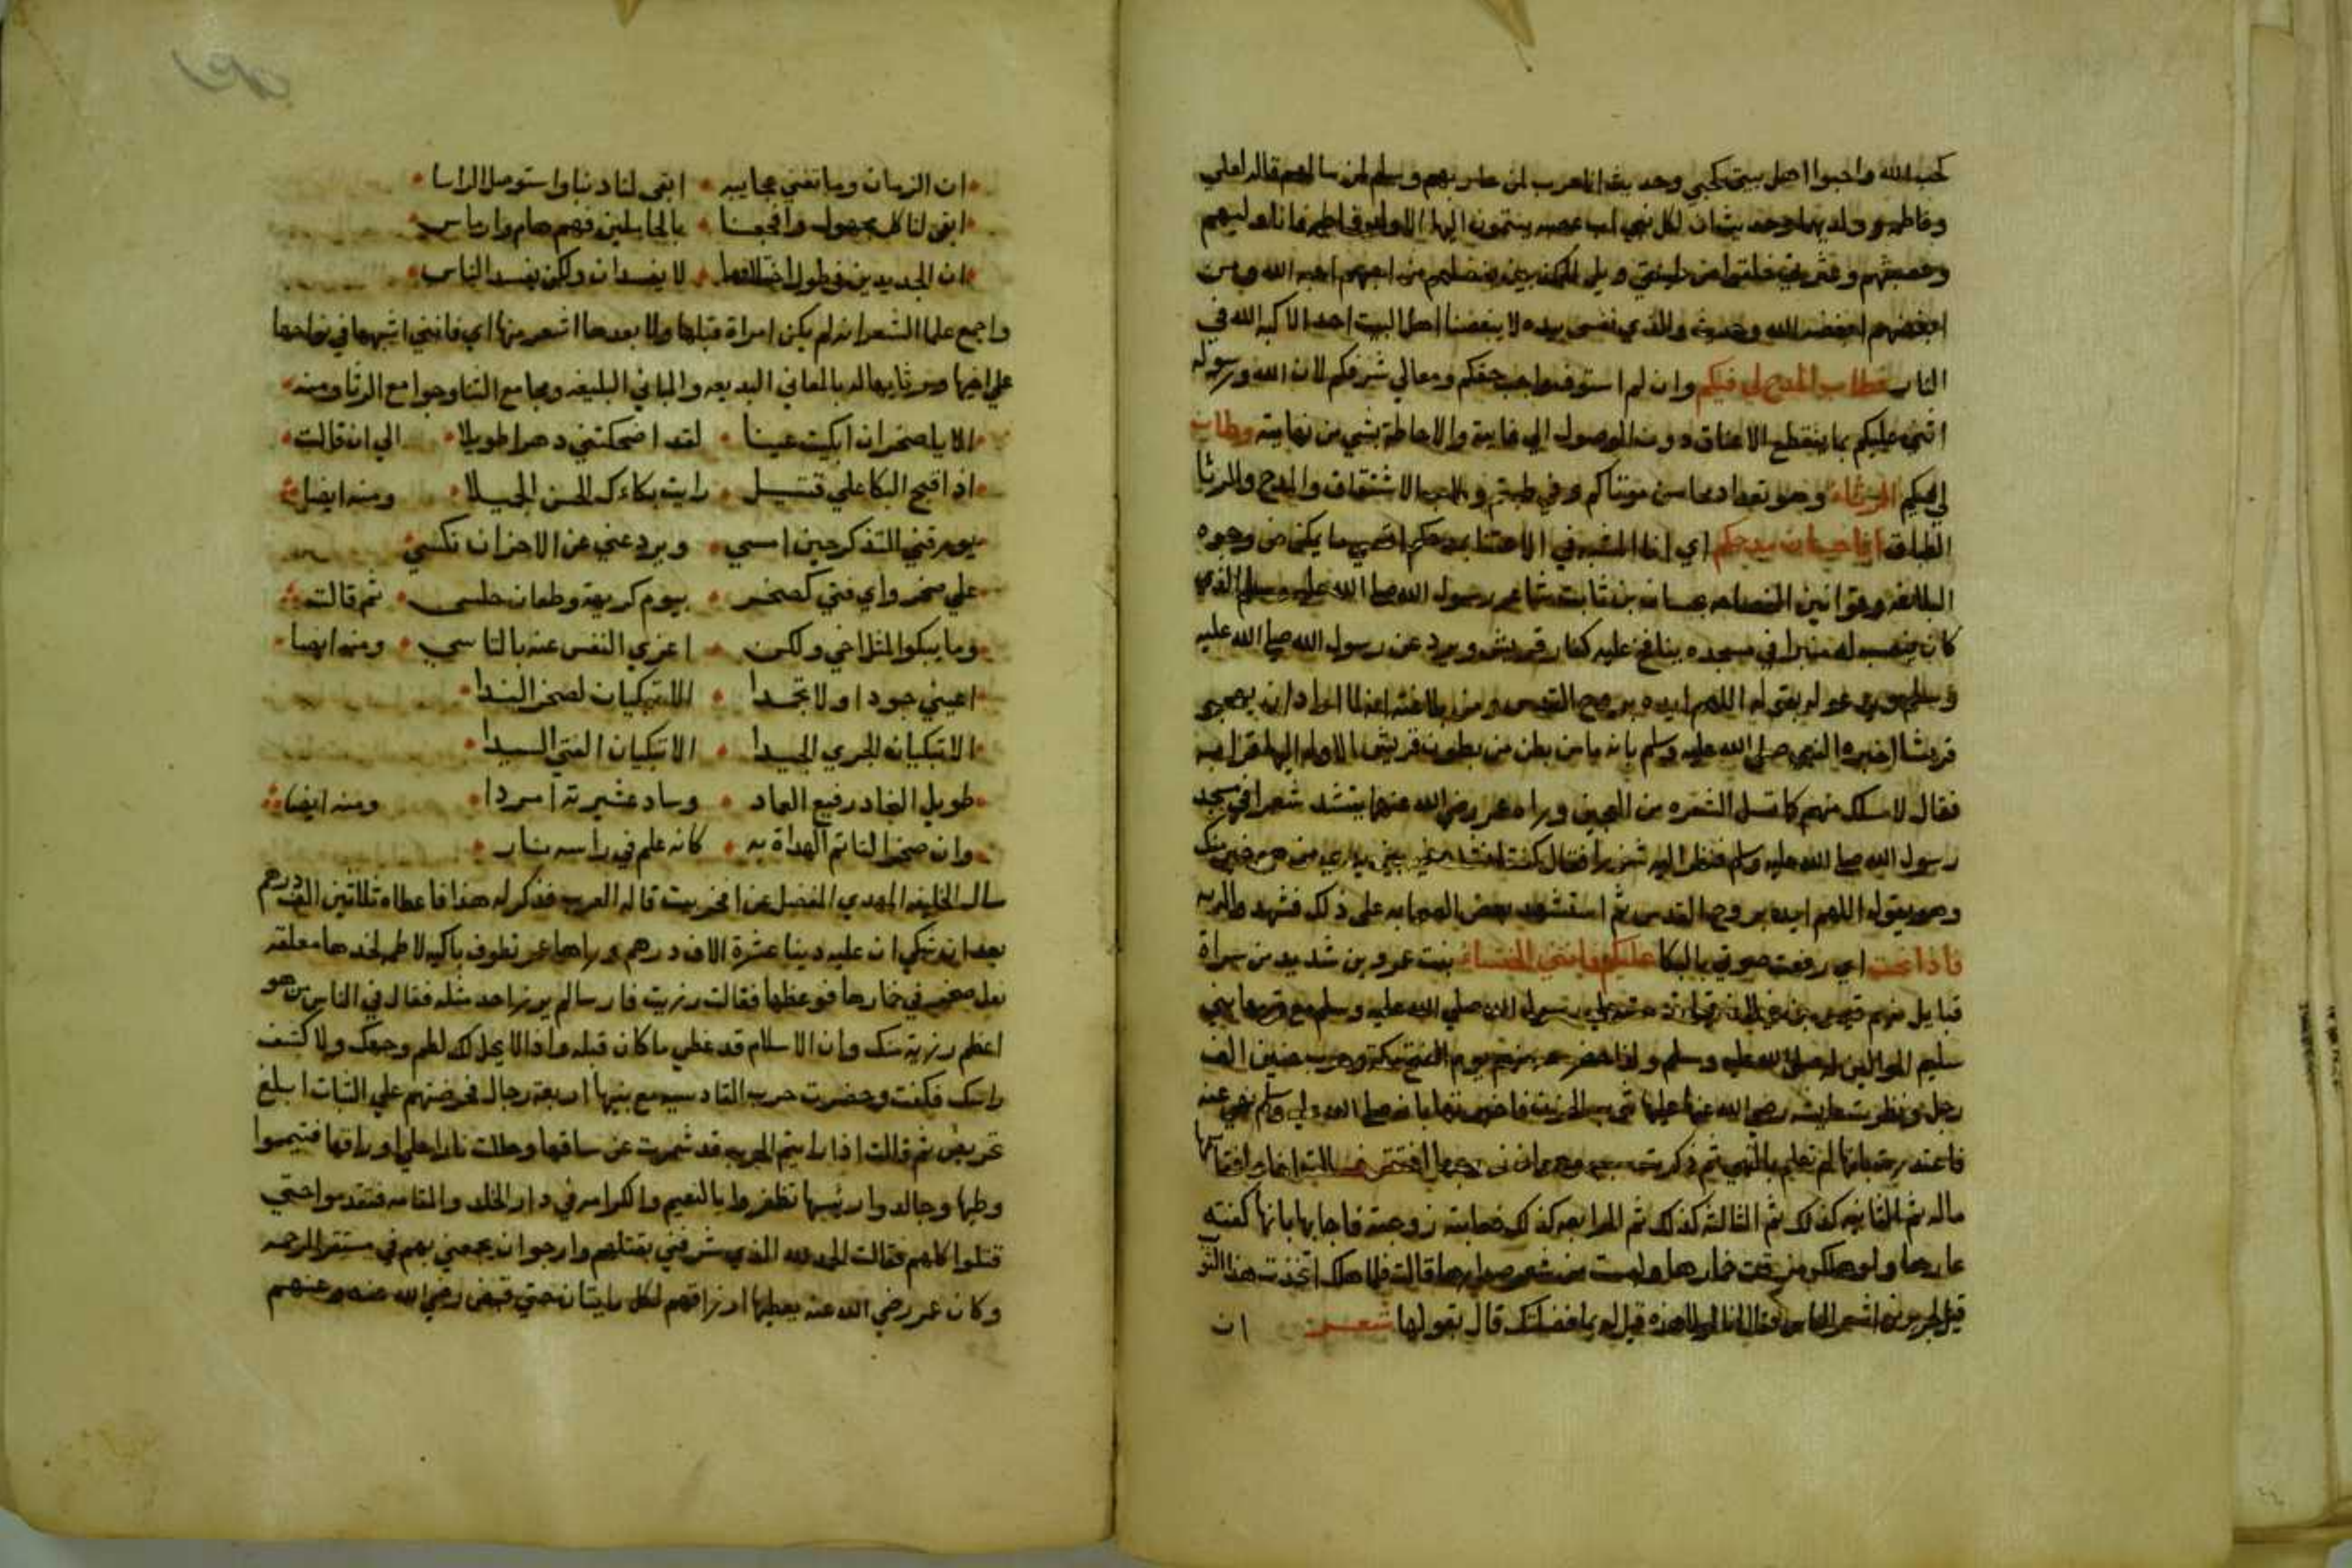 لحب الله واحبوا اهل بيتي لحبي وحديث انا حرب لمن حاربهم وسلم لمن سالمهم قاله لعلي
وفاطمه وولديهما وحديث ان لكل نبي اب عصبه ينتمون اليها الا ولد فاطمه فانا وليهم
وعصبتهم وعترتي خلقوا من طينتي ويل للمكذبين بفضلهم من احبهم احبه الله ومن
ابغضهم ابغضه الله وحديث والذي نفسي بيده لا يبغضنا اهل البيت احد الا كبه الله في
النار فطاب المدح لي فيكم وان لم استوف واجب حقكم ومعالي شرفكم لان الله ورسوله
اثني عليكم بما ينقطع الاعناق دون الوصول الي غايته والاحاطة بشي من نهايته وطاب
لي فيكم الرثاء وهو تعداد محاسن موتاكم وفي طبتم وطاب الاشتقاق والمدح والرثا
الطباق انا حسان مدحكم اي انا المشبه في الاعتنا بمدحكم اقصي ما يمكن من وجوه
البلاغه وقوانين الفصاحه بحسان بن ثابت شاعر رسول الله صلي الله عليه وسلم الذي
كان ينصب له منبرا في مسجده ينافح عليه كفار قريش ويرد عن رسول الله صلي الله عليه
وسلم وهو يدعو له بقوله اللهم ايده بروح القدس ومن بلاغته انه لما اراد ان يهجو
قريشا اخبره النبي صلي الله عليه وسلم بانه ما من بطن من بطون قريش الا وله اليها قرابه
فقال لاسلك منهم كما تسل الشعره من العجين وراه عمر رضي الله عنهما ينشد شعرا في مسجد
رسول الله صلي الله عليه وسلم فنظر اليه شزرا فقال كنت انشد بين يدي من هو خير منك
وهو يقول اللهم ايده بروح القدس ثم استشهد بعض الصحابه علي ذلك فشهد طالبه
فاذا نحت اي رفعت صوتي بالبكا عليكم فانني الخنساء بنت عمرو بن شديد من سراة
قبايل سليم علي رسول الله صلي الله عليه وسلم مع قومها بني
سليم الموالين له صلي الله عليه وسلم ولذا حضر منهم يوم الفتح بمكة وحرب حنين الف
رجل ونظرت عايشه رضي الله عنها عليها فاخبرتها بانه صلي الله عليه وسلم نهي عنه
فاعتذرت بانها لم تعلم بالنهي ثم ذكرت ان زوجها افتقر
ماله ثم الثانيه كذلك ثم الثالثه كذلك ثم الرابعه كذلك فعابته زوجته فاجابها بانها كفته
عارها ولو هلك مزقت خمارها قالت فلما هلك اتخذت هذا
قيل لجرير من اشعر الناس فقال انا لولا هذه قيل له بما فضلتك قال بقولها شعر
ان
ان الزمان وما تفني عجايبه ابقي لنا ذنبا واستوصل الراسا
ابقي لنا كل مجهول وافجعنا بالحاملين فهم هام وارماس
ان الجديدين في طول اختلافهما لا يفسدان ولكن يفسد الناس
واجمع علما الشعر انه لم يكن امراة قبلها ولا بعدها اشعر منها اي فانني اشبهها في نواحها
علي اخيها ومرثايها له بالمعاني البديعه والمباني البليغه ومجامع الثنا وجوامع الرثا ومنه
الا يا صخر ان ابكيت عينا لقد اضحكتني دهرا طويلا الي ان قالت
اذا قبح البكا علي قتيل رايت بكاءك الحسن الجميلا ومنه ايضا
يورقني التذكر حين امسي ويردعني عن الاحزان نكسي
علي صخر واي فتي كصخر بيوم كريهة وطعان حلس ثم قالت
وما يبكوا لمثل اخي ولكن اعزي النفس عنه بالتاسي ومنه ايضا
اعيني جودا ولا تجمدا الا تبكيان لصخر الندا
الا تبكيان الجري الجميدا الا تبكيان الفتي السيدا
طويل النجاد رفيع العماد وساد عشيرته امردا ومنه ايضا
وان صخرا لتاتم الهداة به كانه علم في راسه نار
سال الخليفه المهدي المفضل عن افخر بيت قاله العرب فذكر له هذا فاعطاه ثلاثين الف درهم
بعد ان شكي ان عليه دينا عشرة الاف درهم وراها عمر تطوف باكيه لاطمه لخدها معلقه
نعل صخر في خمارها فوعظها فقالت رزيت فارسا لم يرزا احد مثله فقال في الناس من هو
اعظم رزية منك وان الاسلام قد غطي ما كان قبله واذا لا يحل لك لطم وجهك ولا كشف
راسك فكفت وحضرت حرب القادسيه مع بنيها اربعة رجال فحرضتهم علي الثبات ابلغ
تحريض ثم قالت اذا رايتم الحرب قد شمرت عن ساقها وحللت نارا علي اوراقها فتيمموا
وطيها وجالدوا رئيسها تظفروا بالنعيم والكرامه في دار الخلد والمقامه فتقدموا حتي
قتلوا كلهم فقالت الحمد لله الذي شرفني بقتلهم وارجو ان يجمعني بهم في مستقر الرحمه
وكان عمر رضي الله عنه يعطيها ارزاقهم لكل مايتان حتي قبض رضي الله عنه وعنهم